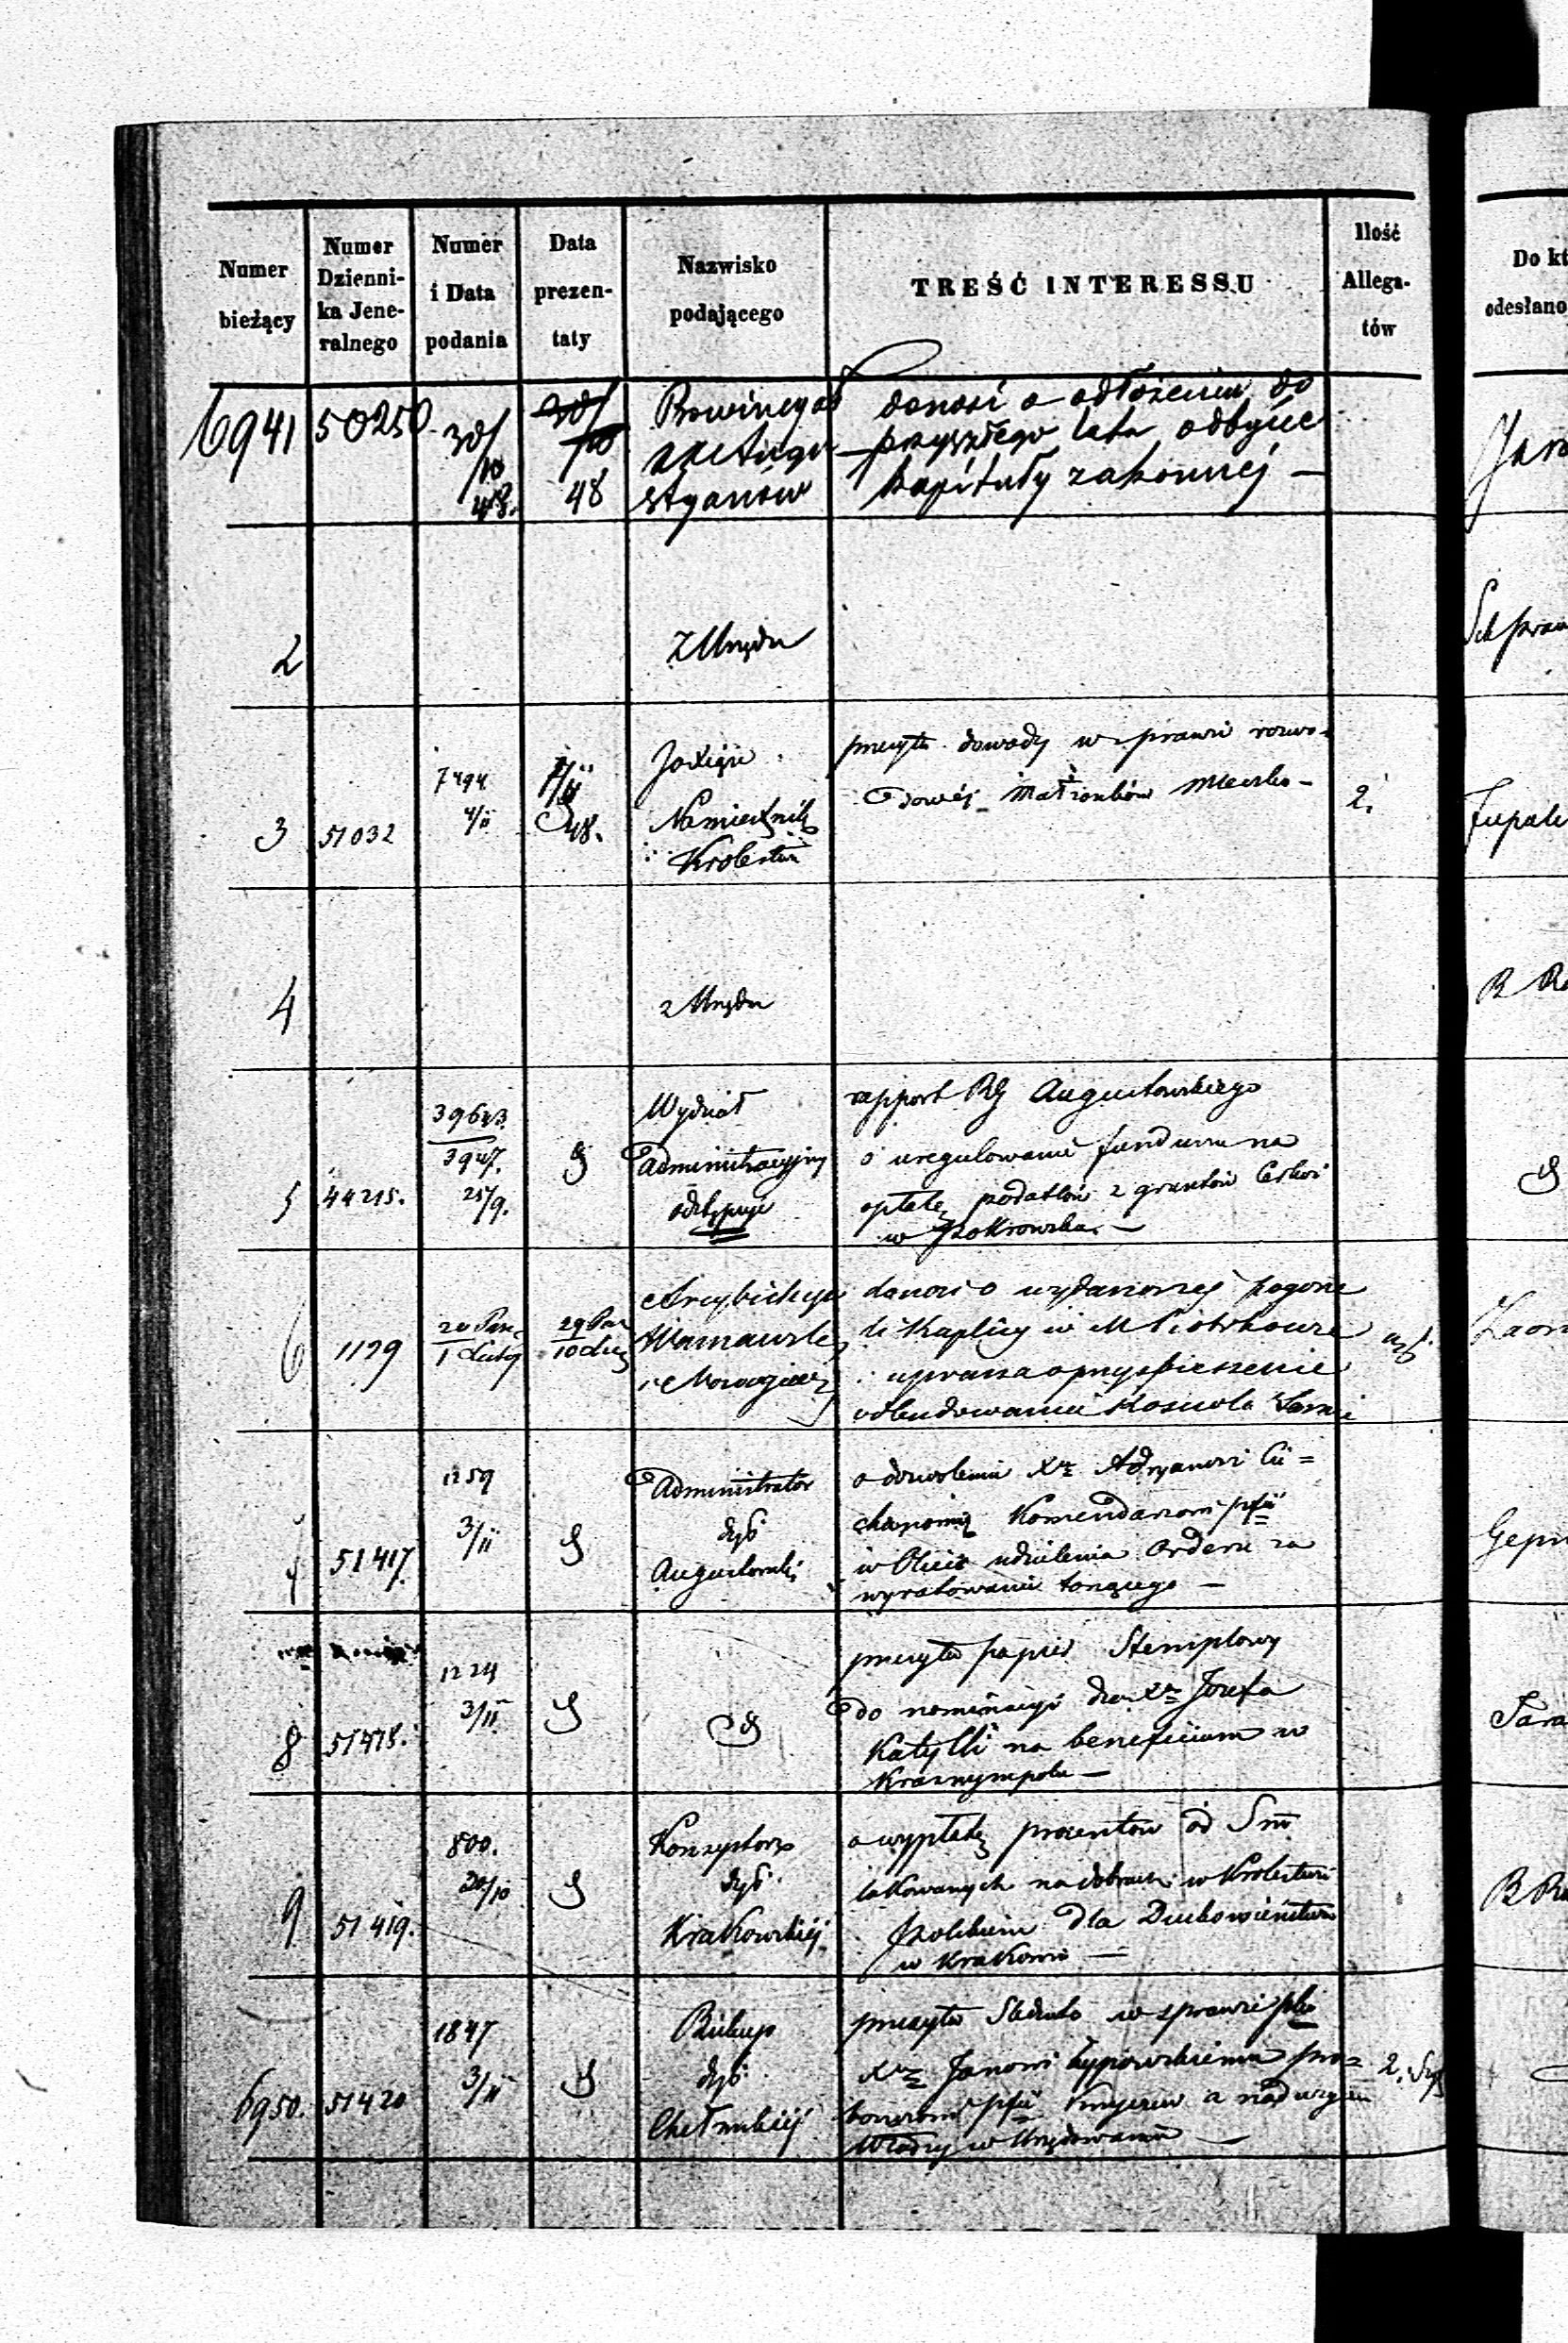 Numer bieżący
Numer Dzienni-
ka Jene-
ralnego
Numer i Data podania
Data prezen-
taty
Nazwisko podającego
TREŚĆ INTERESSU
Ilość Allega-
tów
Do kt
odesłano
6941 50250 30/10 48. 30/10 48
Prowincyał
XX Augu
styanów
donosi o odłożeniu do
przyszłego lata odbycie
kapituły zakonnej —
2
Z Urzędu
3 51032
7494
4/11
48.
JO Xiąże
Namiestnik
Krolestwa
przesyła dowody w sprawie rozwo-
dowej Małżonków
2.
4
z Urzędu
5 44215.
39643
3947.
25/9.
Wydział
Administracyjny
odstępuje
rapport RG Augustowskiego
o uregulowanie funduszu na
opłatę podatków z gruntów Cerkwi
w Pokrowsku. —
6 1129
20 Paz
1 Lutego
29 Paz
10 Lut
Arcybiskup
Warszawski
i Nowogieor
donosi o wydarzonej pogorze
li Kaplicy w M Piotrkowie
i uprasza o przyspieszenie
odbudowania Kościoła
7 51417.
1259
3/11
Administrator
dyć
Augustowski
o dozwolenie Xdz Adryanowi Cie=
chanowicz Komendarzowi pfii
w udzielenia Orderu za
wyratowanie tonącego —
8 51418.
1224
3/11
przesyła papier Stemplowy
do nominacyi dla Xdz Józefa
na beneficium w
Krasnympolu —
9 51419.
800.
20/10
Konsystorz
dyć
Krakowskiej
o wypłatę procentów od Sm
lokowanych na dobrach w Krolestwie
Polskiem dla Duchowieństwa
w Krakowie —
6950. 51420
1847
3/11
Biskup
dyć
Chełmskiej
przesyła w sprawie
Xdz Janowi Łypowskiemu pro=
boszczowi pfii a nadużycie
Władzy w Urzędowaniu —
2.